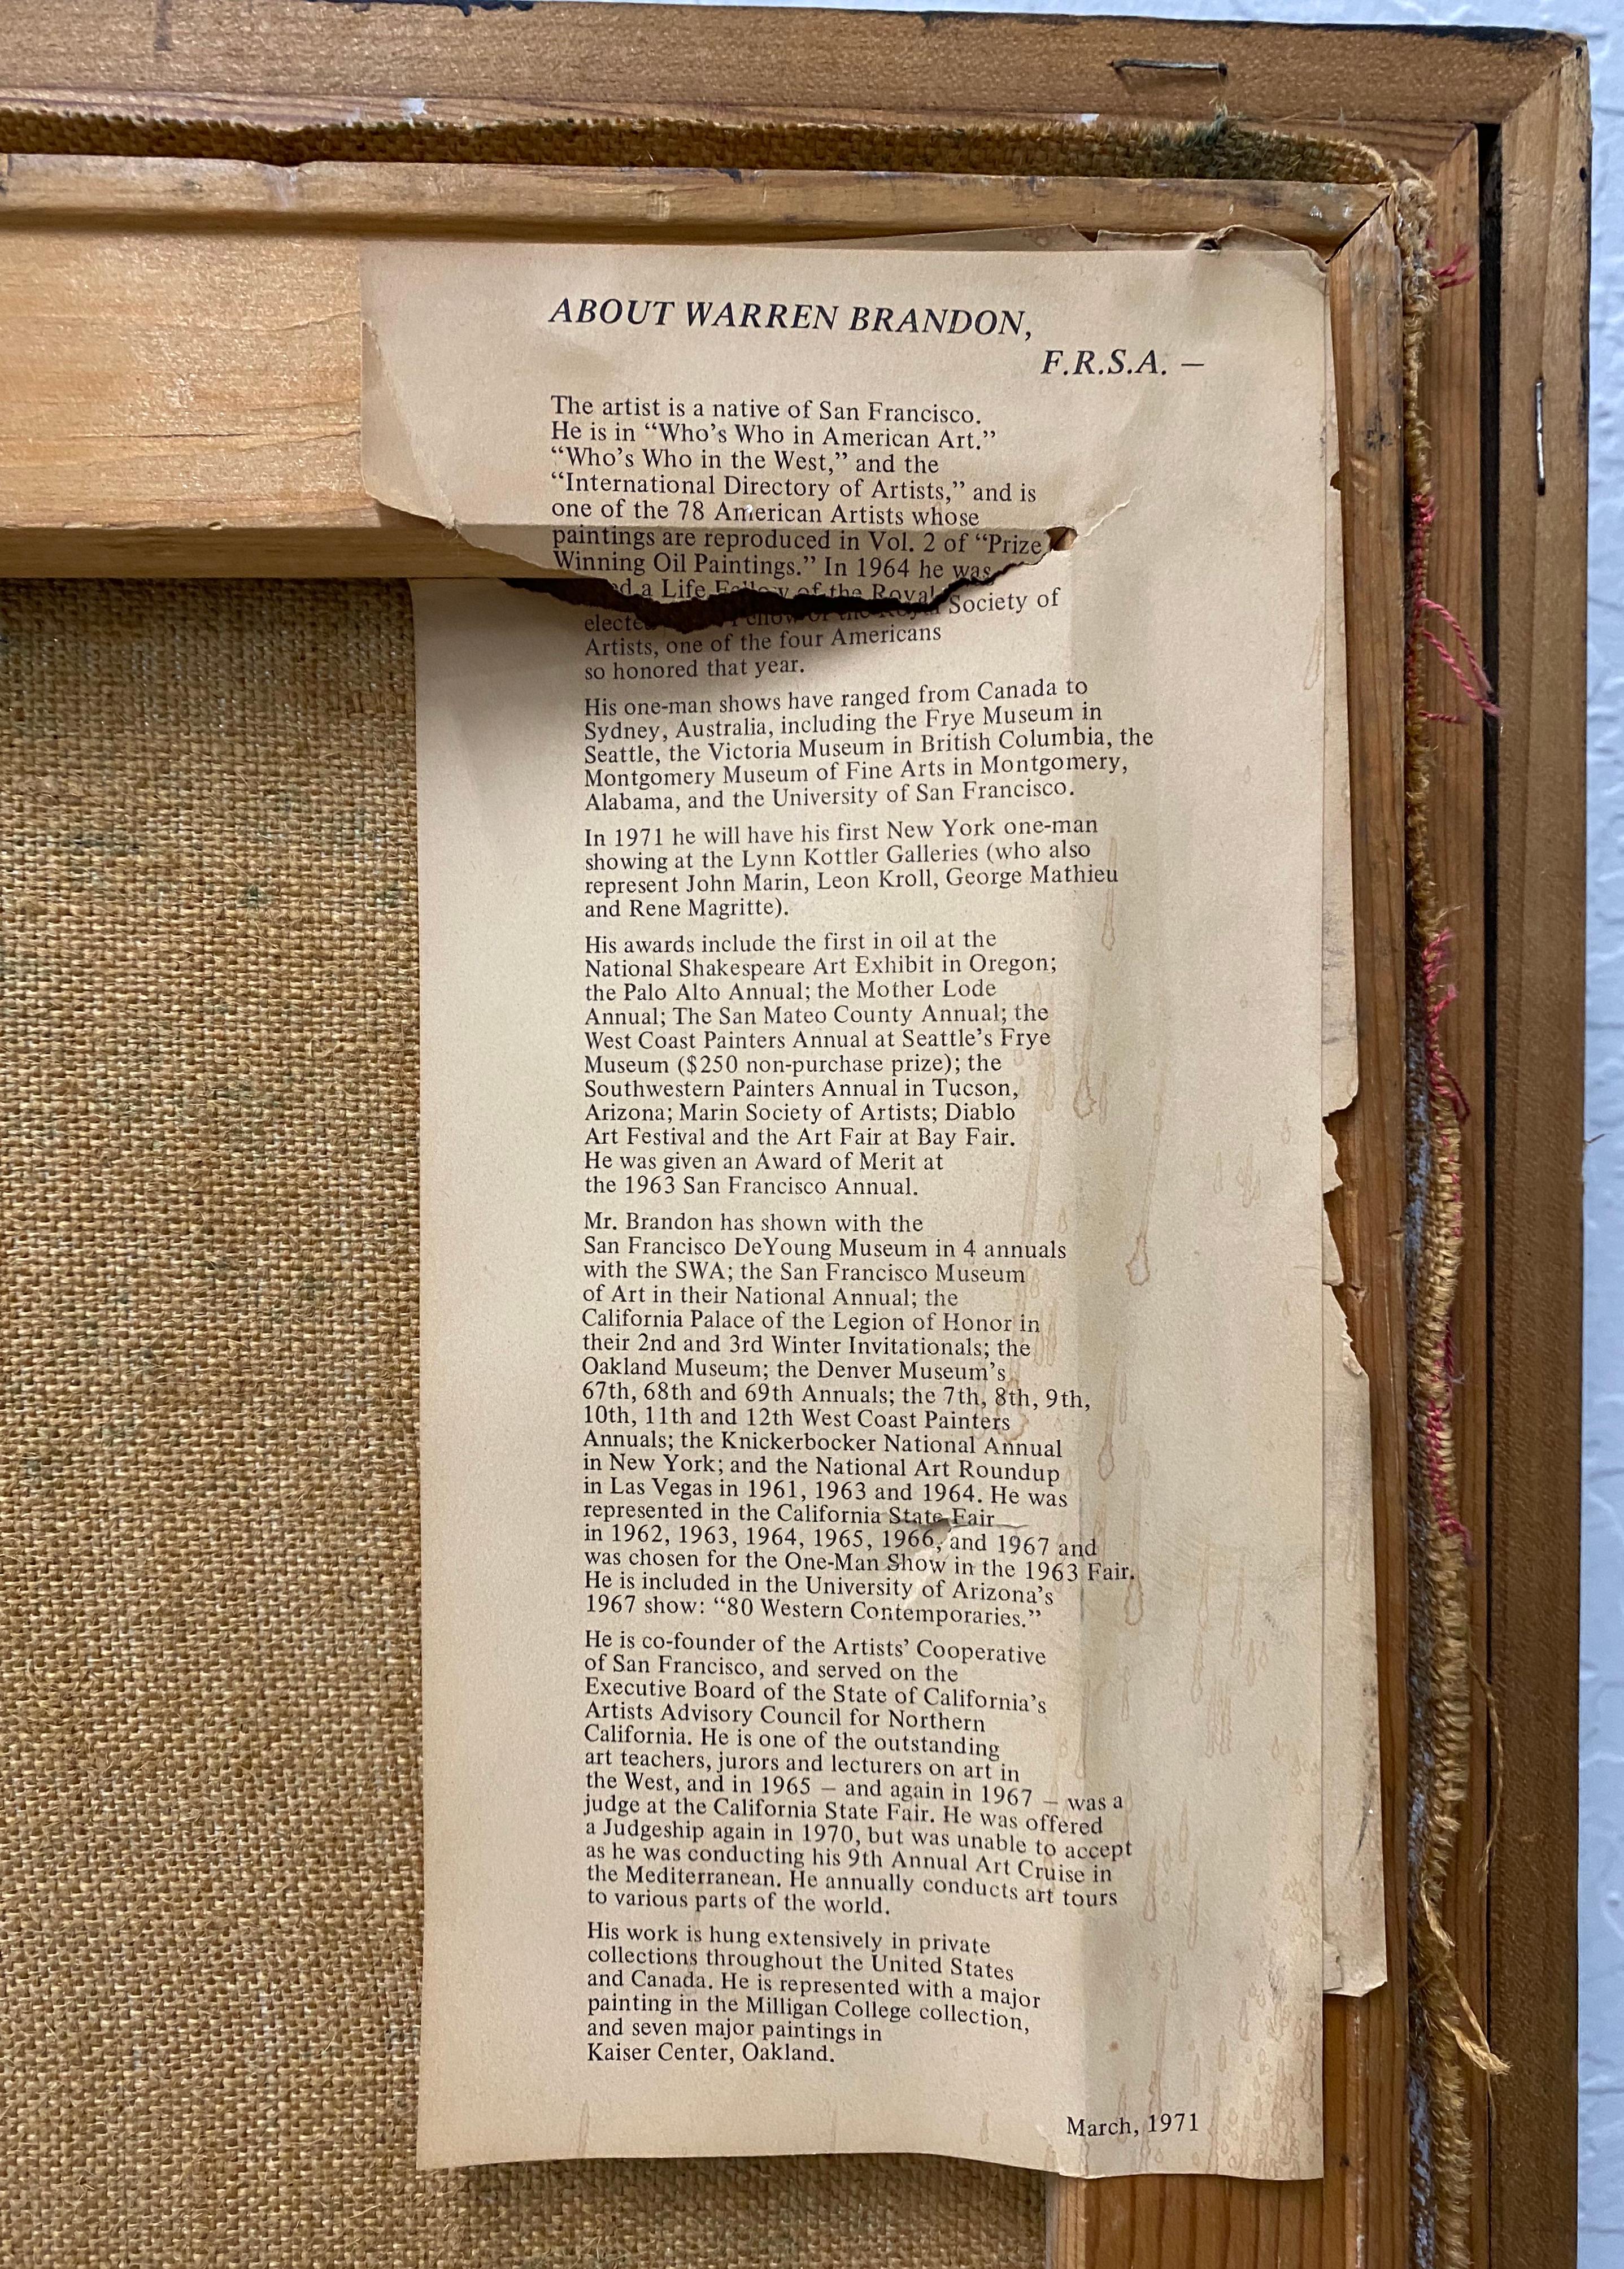 ABOUT WARREN BRANDON,
F.R.S.A. —
The artist is a native of San Francisco.
He is in “Who’s Who in American Art.”
“Who’s Who in the West,” and the
“International Directory of Artists,” and is
one of the 78 American Artists whose
paintings are reproduced in Vol. 2 of “Prize
Winning Oil Paintings.” In 1964 he was
elected a Life Fellow of the Royal Society of
Artists, one of the four Americans
so honored that year.
His one-man shows have ranged from Canada to
Sydney, Australia, including the Frye Museum in
Seattle, the Victoria Museum in British Columbia, the
Montgomery Museum of Fine Arts in Montgomery,
Alabama, and the University of San Francisco.
In 1971 he will have his first New York one-man
showing at the Lynn Kottler Galleries (who also
represent John Marin, Leon Kroll, George Mathieu
and Rene Magritte).
His awards include the first in oil at the
National Shakespeare Art Exhibit in Oregon;
the Palo Alto Annual; the Mother Lode
Annual; The San Mateo County Annual; the
West Coast Painters Annual at Seattle’s Frye
Museum ($250 non-purchase prize); the
Southwestern Painters Annual in Tucson,
Arizona; Marin Society of Artists; Diablo
Art Festival and the Art Fair at Bay Fair.
He was given an Award of Merit at
the 1963 San Francisco Annual.
Mr. Brandon has shown with the
San Francisco DeYoung Museum in 4 annuals
with the SWA; the San Francisco Museum
of Art in their National Annual; the
California Palace of the Legion of Honor in
their 2nd and 3rd Winter Invitationals; the
Oakland Museum; the Denver Museum’s
67th, 68th and 69th Annuals; the 7th, 8th, 9th,
10th, 11th and 12th West Coast Painters
Annuals; the Knickerbocker National Annual
in New York; and the National Art Roundup
in Las Vegas in 1961, 1963 and 1964. He was
represented in the California State Fair
in 1962, 1963, 1964, 1965, 1966, and 1967 and
was chosen for the One-Man Show in the 1963 Fair.
He is included in the University of Arizona’s
1967 show: “80 Western Contemporaries.”
He is co-founder of the Artists’ Cooperative
of San Francisco, and served on the
Executive Board of the State of California’s
Artists Advisory Council for Northern
California. He is one of the outstanding
art teachers, jurors and lecturers on art in
the West, and in 1965 — and again in 1967 — was a
judge at the California State Fair. He was offered
a Judgeship again in 1970, but was unable to accept
as he was conducting his 9th Annual Art Cruise in
the Mediterranean. He annually conducts art tours
to various parts of the world.
His work is hung extensively in private
collections throughout the United States
and Canada. He is represented with a major
painting in the Milligan College collection,
and seven major paintings in
Kaiser Center, Oakland.
March, 1971